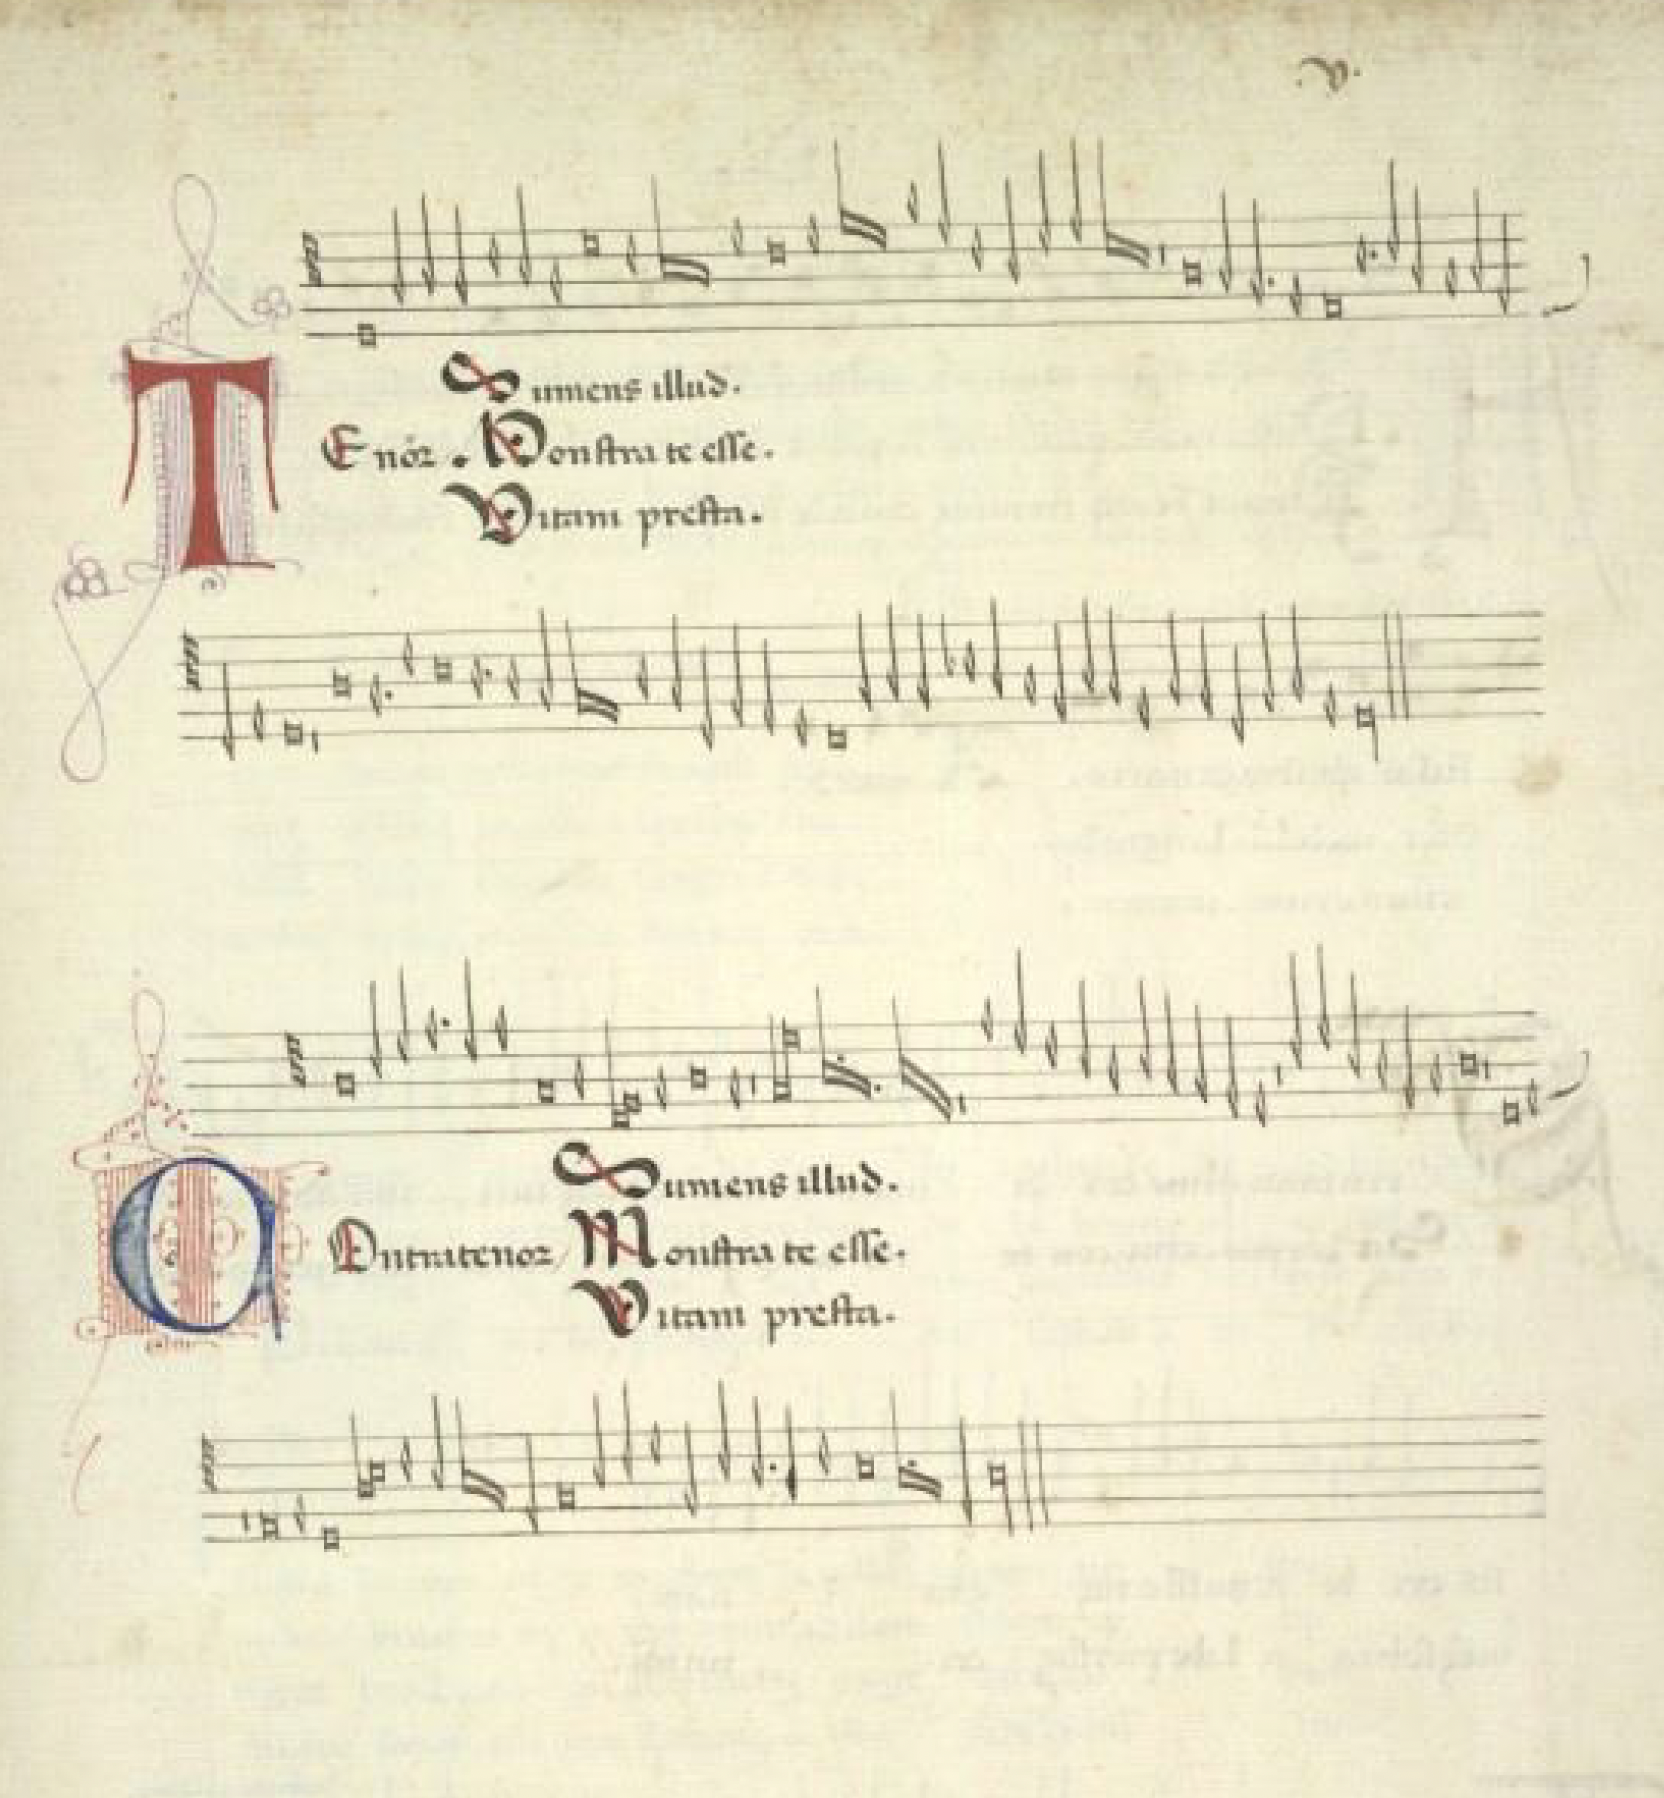 Sumens illud.
Tenor. Monstra te esse.
Vitam presta.
Sumens illud.
Contratenor Monstra te esse.
Vitam presta.